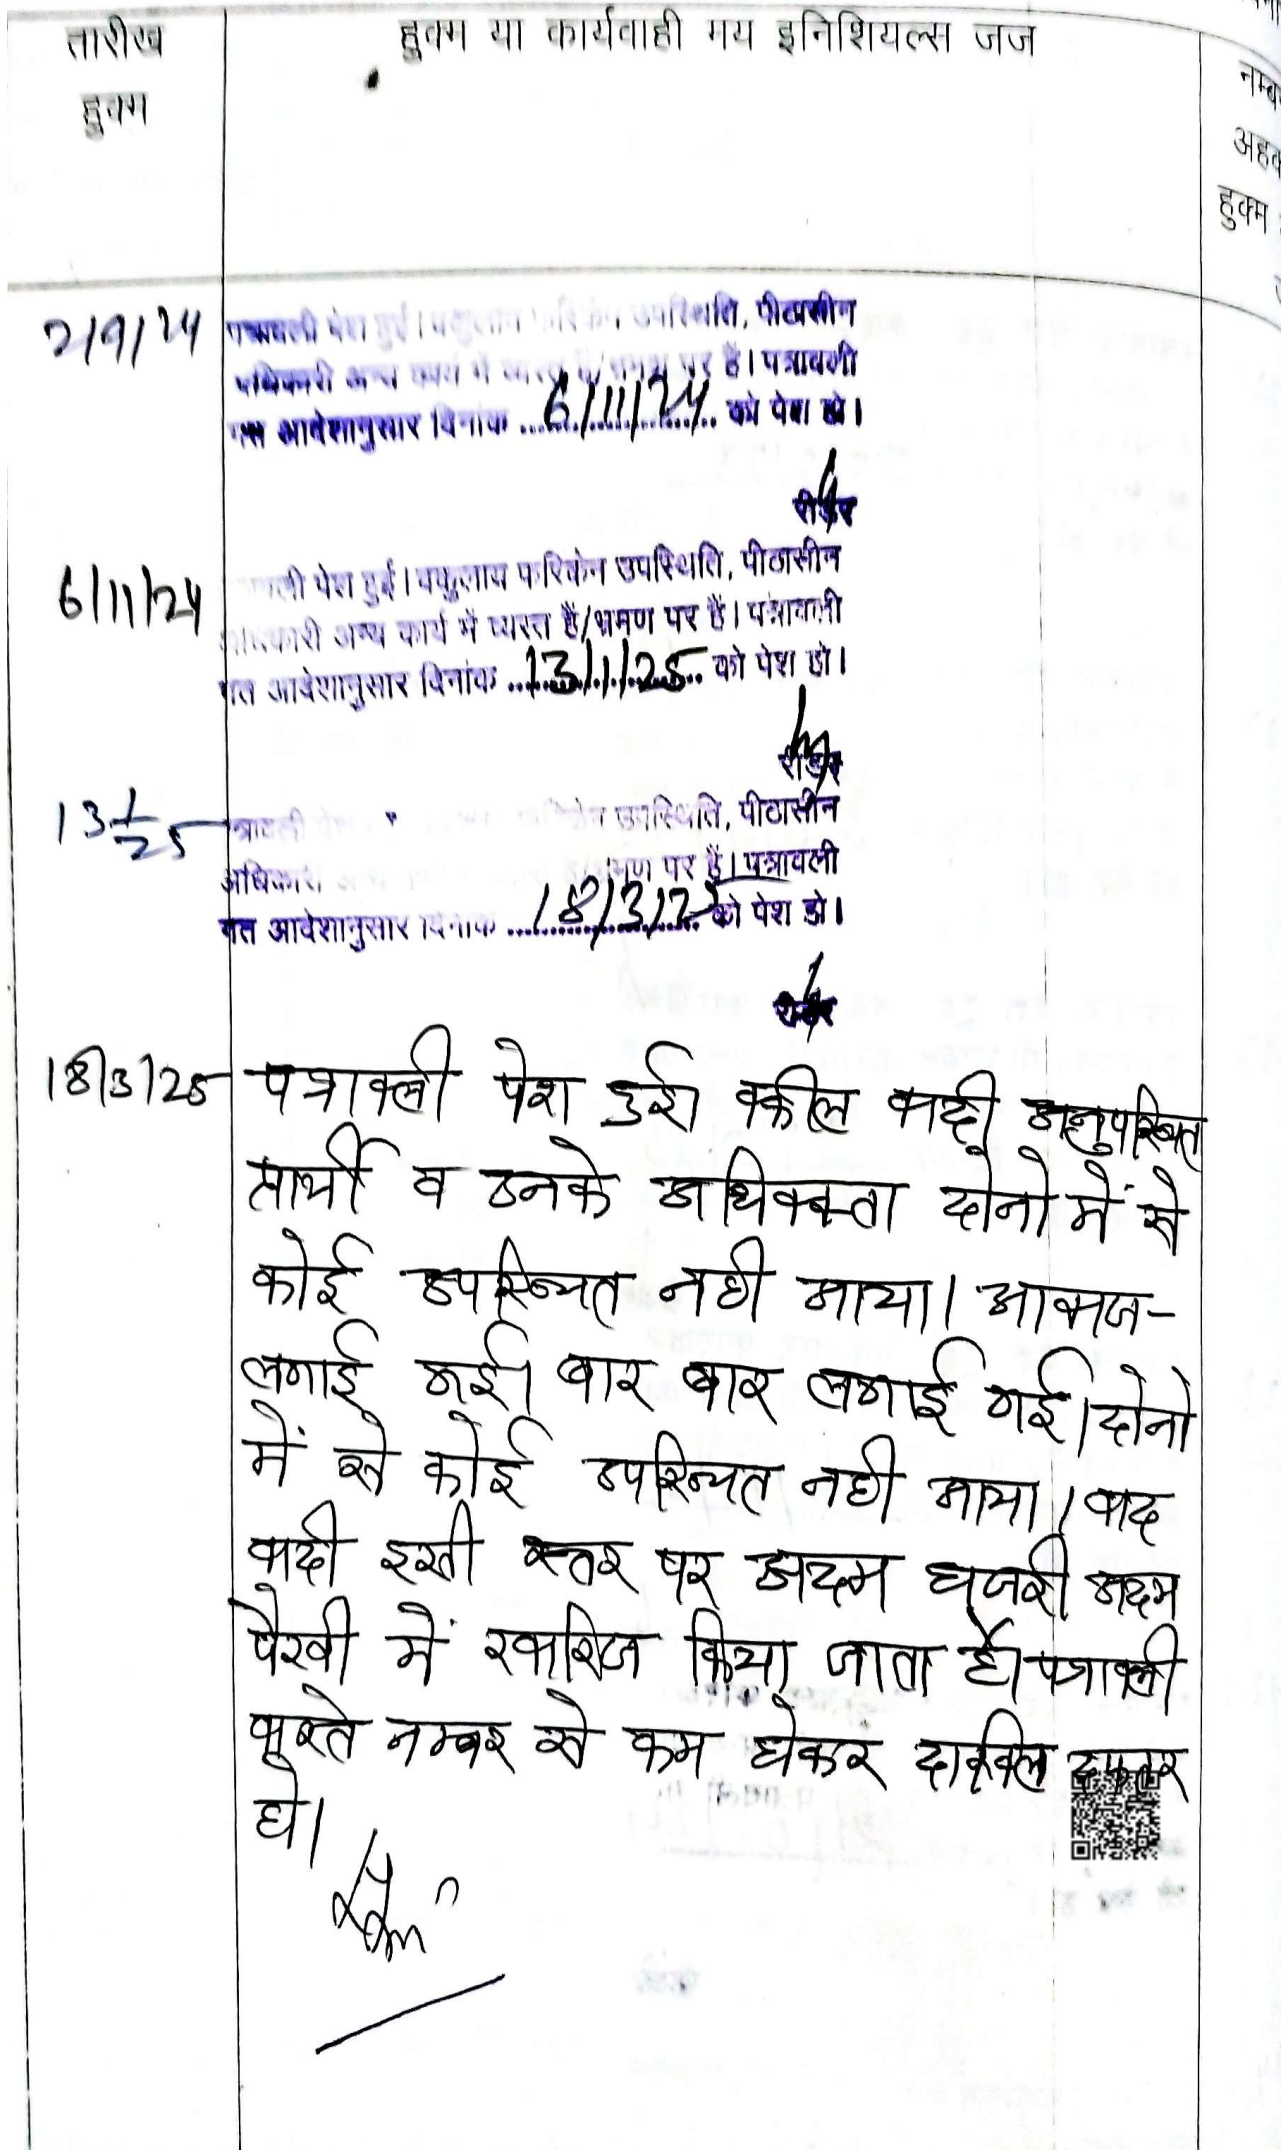 तारीख
हुक्म
हुक्म या कार्यवाही मय इनिशियल्स जज
हुक्म
2/9/24
पत्रावली पेश हुई। उपस्थिति, पीठासीन
अधिकारी अन्य कार्य में पर हैं। पत्रावली
गत आवेशानुसार दिनांक 6/11/24 को पेश हो।
रीडर
6/11/24
पेश हुई। वकुलाय फरिकेन उपस्थिति, पीठासीन
अधिकारी अन्य कार्य में व्यस्त हैं/भ्रमण पर हैं। पत्रावली
गत आवेशानुसार दिनांक 13/1/25 को पेश हो।
रीडर
13/1/25
उपस्थिति, पीठासीन
अधिकारी भ्रमण पर हैं। पत्रावली
गत आवेशानुसार दिनांक 18/3/25 को पेश हो।
रीडर
18/3/25
पत्रावली पेश हुई। वकील वादी अनुपस्थित
व उनके अधिवक्ता दोनो में से
कोई उपस्थित नही आया। आवाज-
लगाई गई। बार बार लगाई गई। दोनो
में से कोई उपस्थित नही आया। वाद
वादी इसी स्तर पर अदम हाजरी अदम
पैरवी में खारिज किया जाता है। पत्रावली
नम्बर से कम होकर दाखिल दफ्तर
हो।